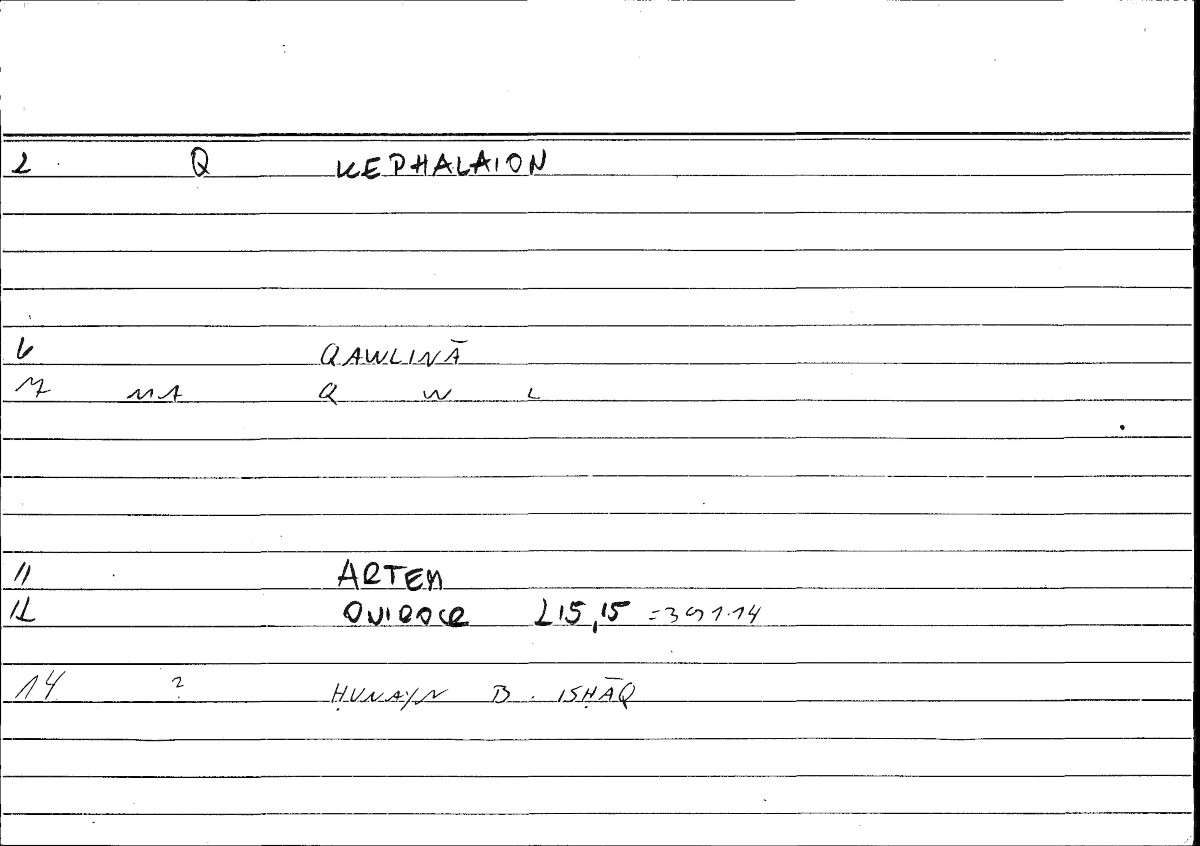 2 Q KEPHALAION
6 QAWLINĀ
7 M1 Q W L
11 ARTEM
12 OVIDOCR 215,15 =391.14
14 ? ḤUNAYN B. ISḤĀQ